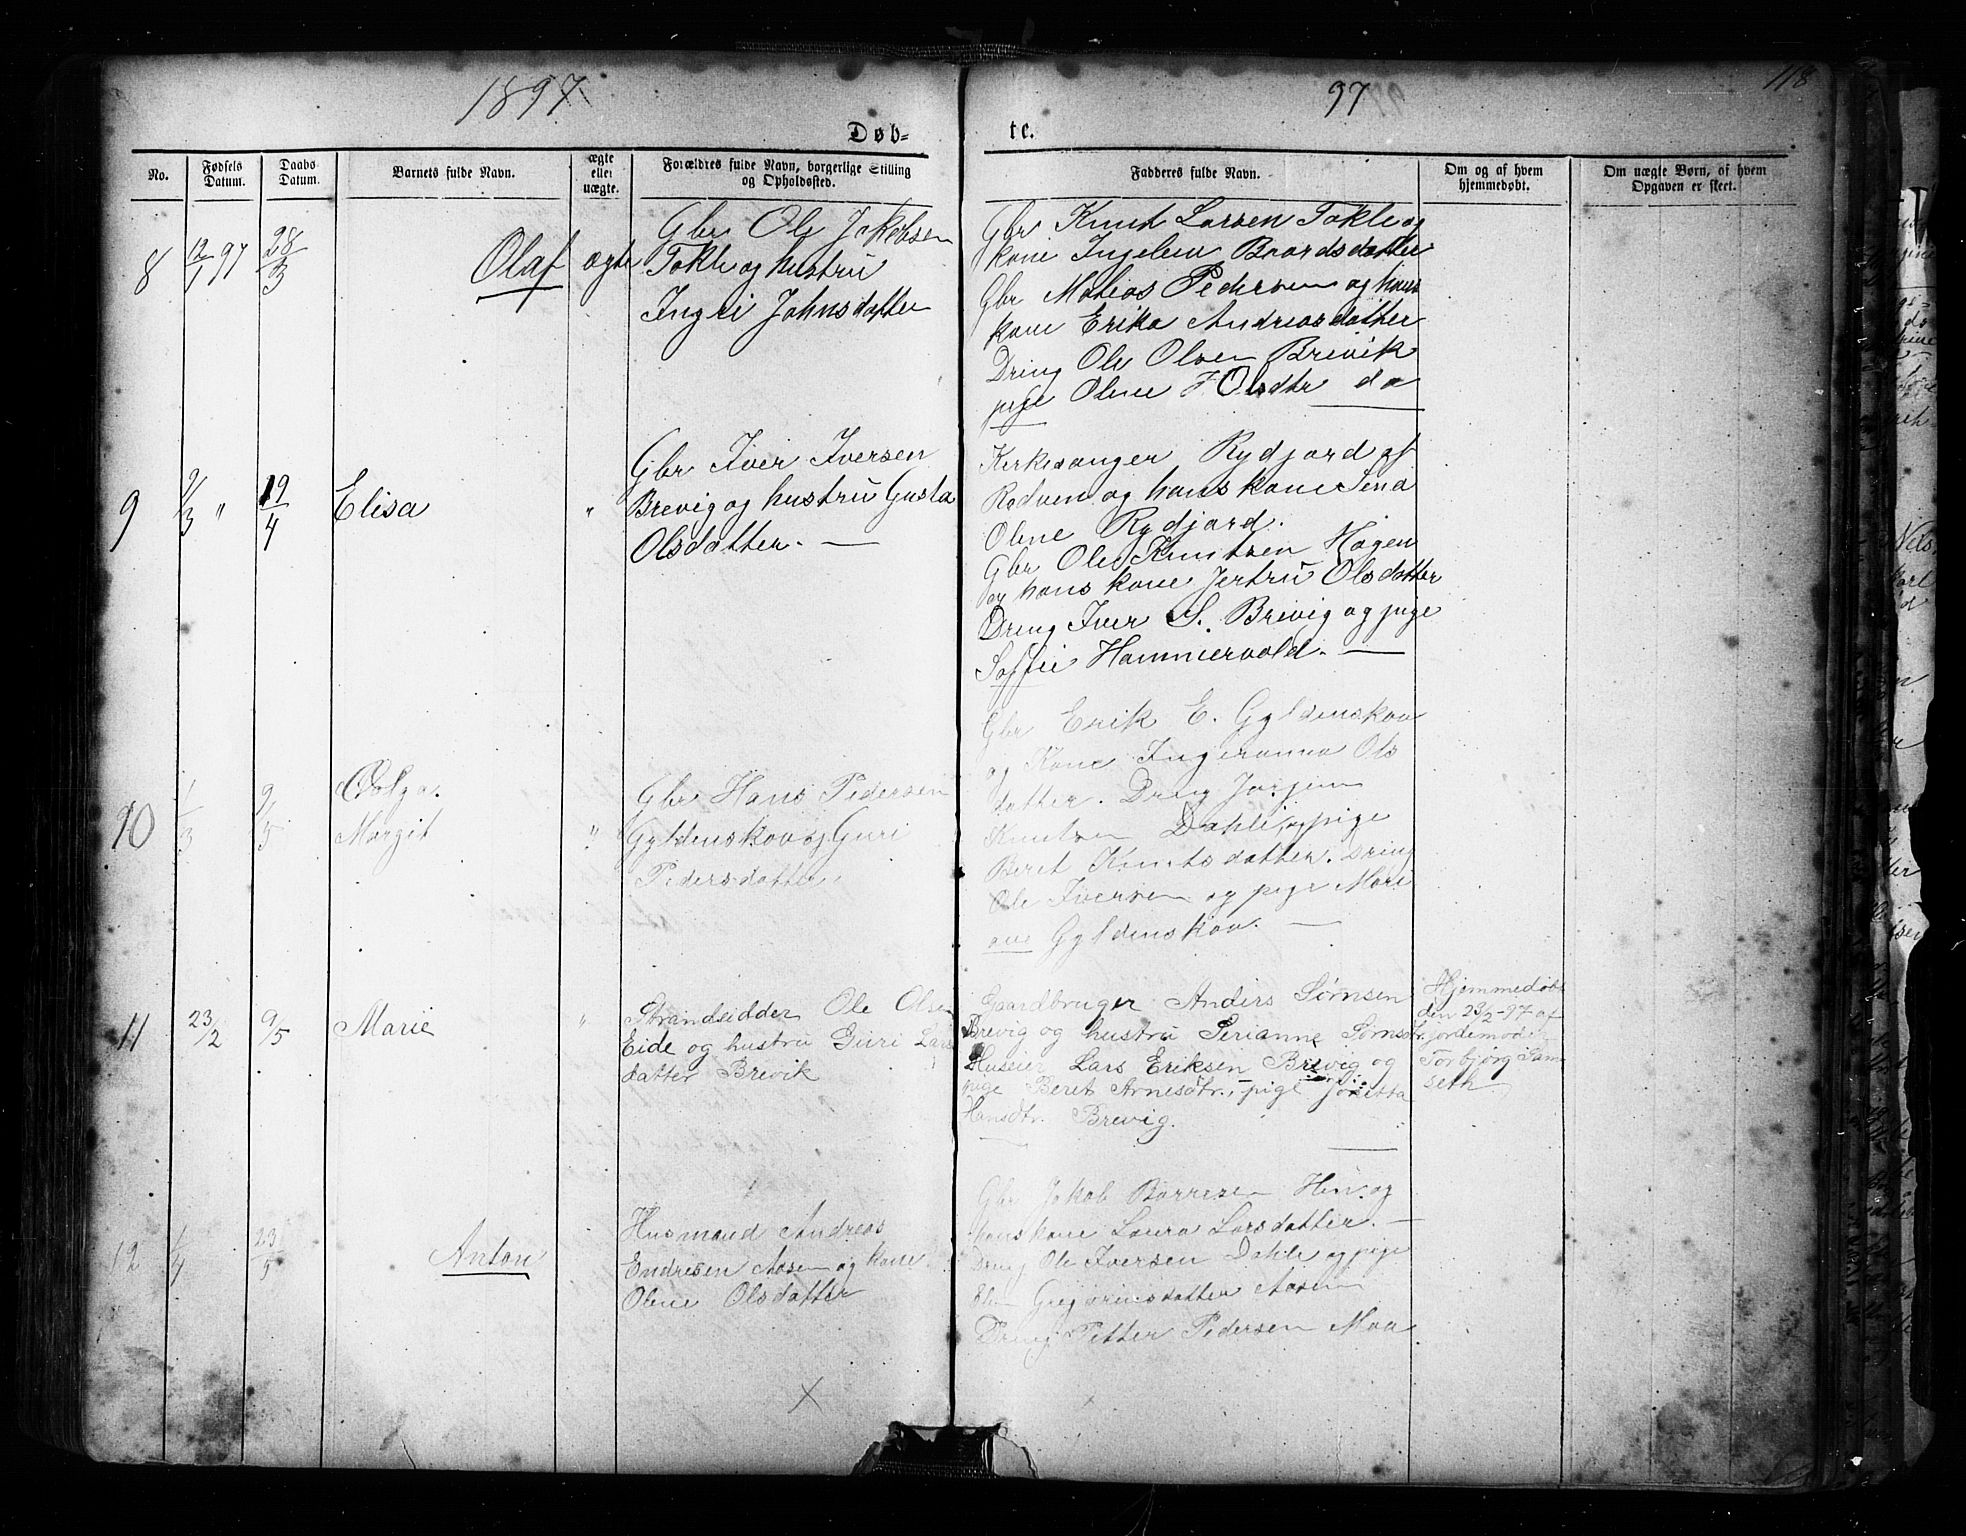 1897
97
118
Døb=
te.
No.
Fødsels Datum.
Daabs Datum.
Barnets fulde Navn.
ægte eller uægte.
Forældres fulde Navn, borgerlige Stilling og Opholdsted.
Fadderes fulde Navn.
Om og af hvem hjemmedøbt.
Om uægte Børn, af hvem Opgaven er skeet.
8
12/1 97
28/3
Olaf
ægte
Gbr Ole Jakobsen
Tokle og hustru
Ingri Johnsdatter
Gbr Knut Larsen Tokle og
kone Ingelen Baardsdatter
Gbr Matias Pedersen og hans
kone Erika Andreasdatter
Dreng Ole Olsen Brevik
pige Oline Olsdtr do
9
9/3 "
19/4
Elisa
"
Gbr Iver Iversen
Brevig og hustru Gusta
Olsdatter.
Kirkesanger Rydjord af
Rødven og hans kone Sina
Oline Rydjord.
Gbr Ole Knutsen Hagen
og hans kone Jertru Olsdatter
Dreng Iver S. Brevig og pige
Soffie Hammervold.
10
1/3
9/5
Olga
Margit
"
Gbr Hans Pedersen
Gyldenskov og Guri
Pedersdatter
Gbr Erik E. Gyldenskov
og Kone Ingeranna Ols
datter. Dreng Jørgen
Knutsen Dahle og pige
Beret Knutsdatter. Dreng
Ole Iversen og pige Mari
ane Gyldenskov.
11
23/2
9/5
Marie
"
Strandsidder Ole Olsen
Eide og hustru Guri Lars
datter Brevik
Gaardbruger Anders Sørnsen
Brevig og hustru Perianne Sørnsdtr.
Huseier Lars Eriksen Brevig og
pige Beret Arnesdtr., pige Josetta
Hansdtr. Brevig.
Hjemmedøbt
den 23/2-97 af
jordemoder
Torbjørg Sam
seth
12
1/4
23/5
Anton
Husmand Andreas
Endresen Aasen og kone
Oline Olsdatter
Gbr Jakob Børresen Hen og
hans kone Laura Larsdatter.
Dreng Ole Iversen Dahle og pige
Elen Gregoriusdatter Aasen
Dreng Petter Pedersen Moa